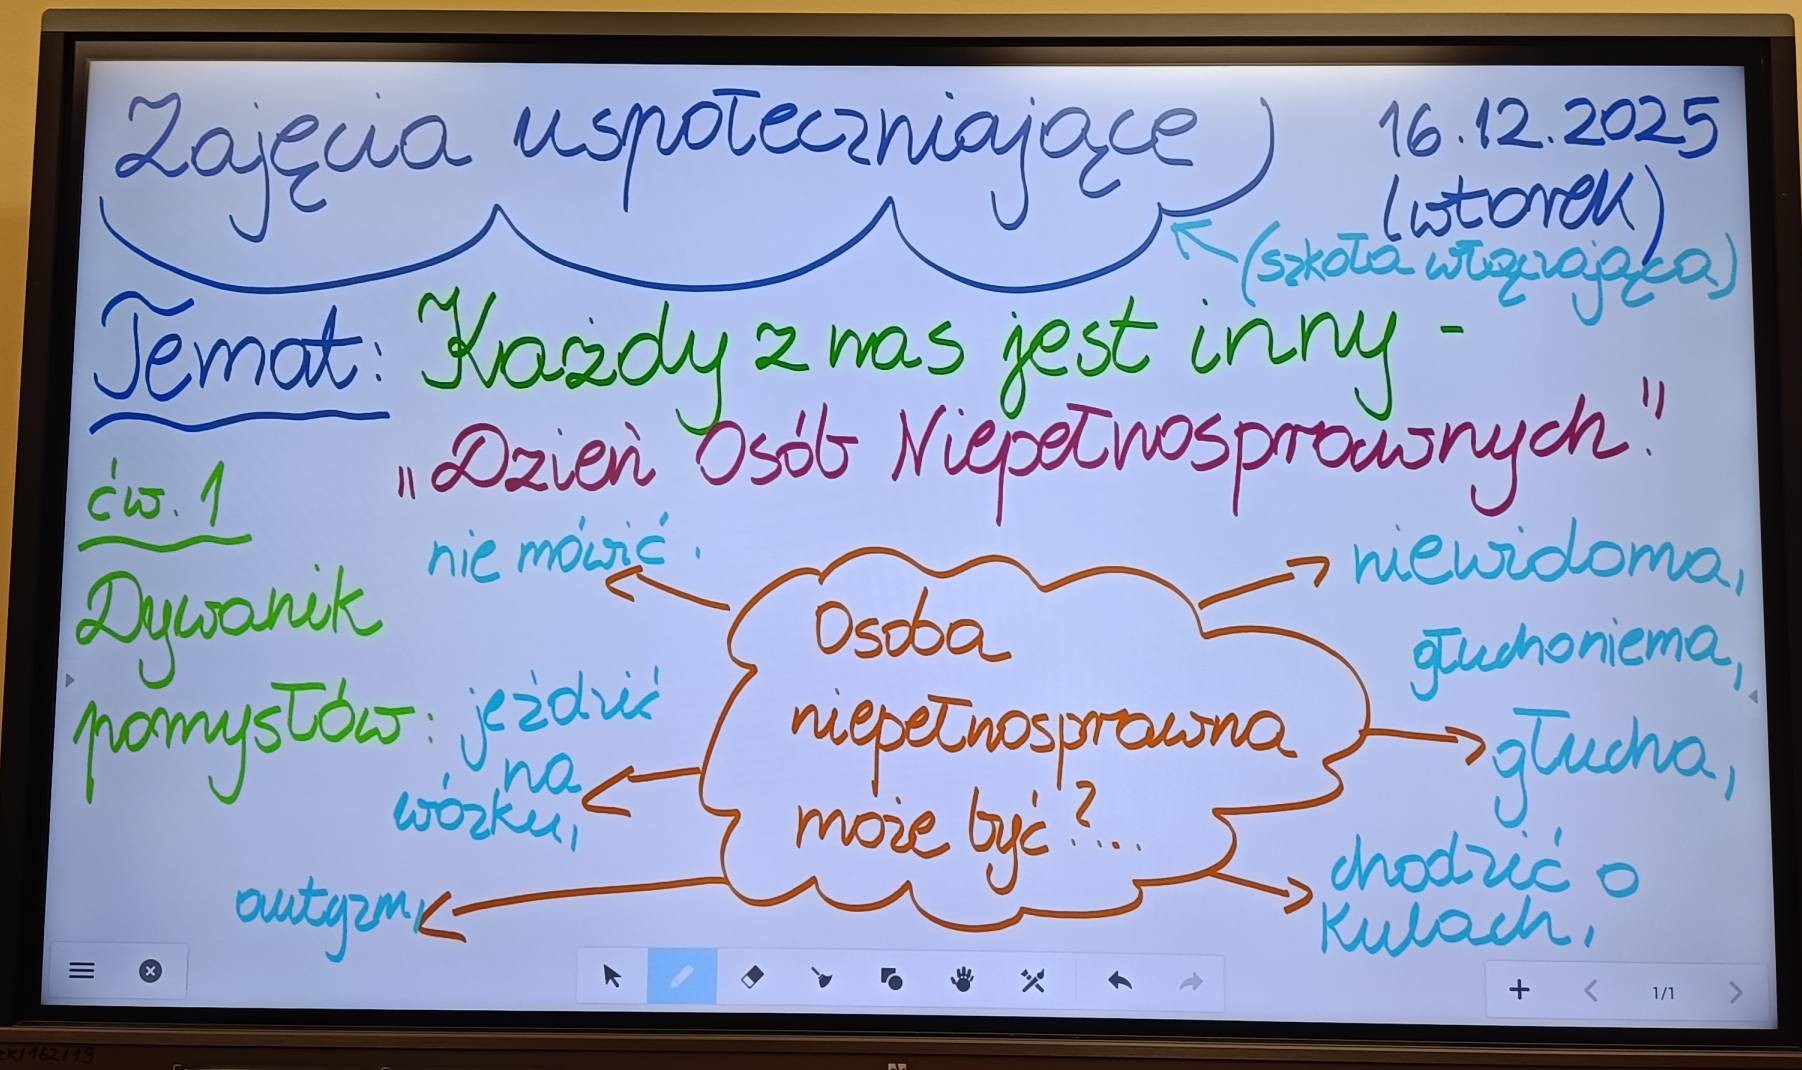 Zajęcia uspołeczniające
16.12.2025
(wtorek)
(szkoła włączająca)
Temat: Każdy z nas jest inny -
„Dzień Osób Niepełnosprawnych."
ćw. 1
Dywanik
pomysłów:
nie mówić.
jeździć
na
wózku,
autyzm,
Osoba
niepełnosprawna
może być?...
niewidoma,
głuchoniema,
głucha,
chodzić o
kulach,
1/1